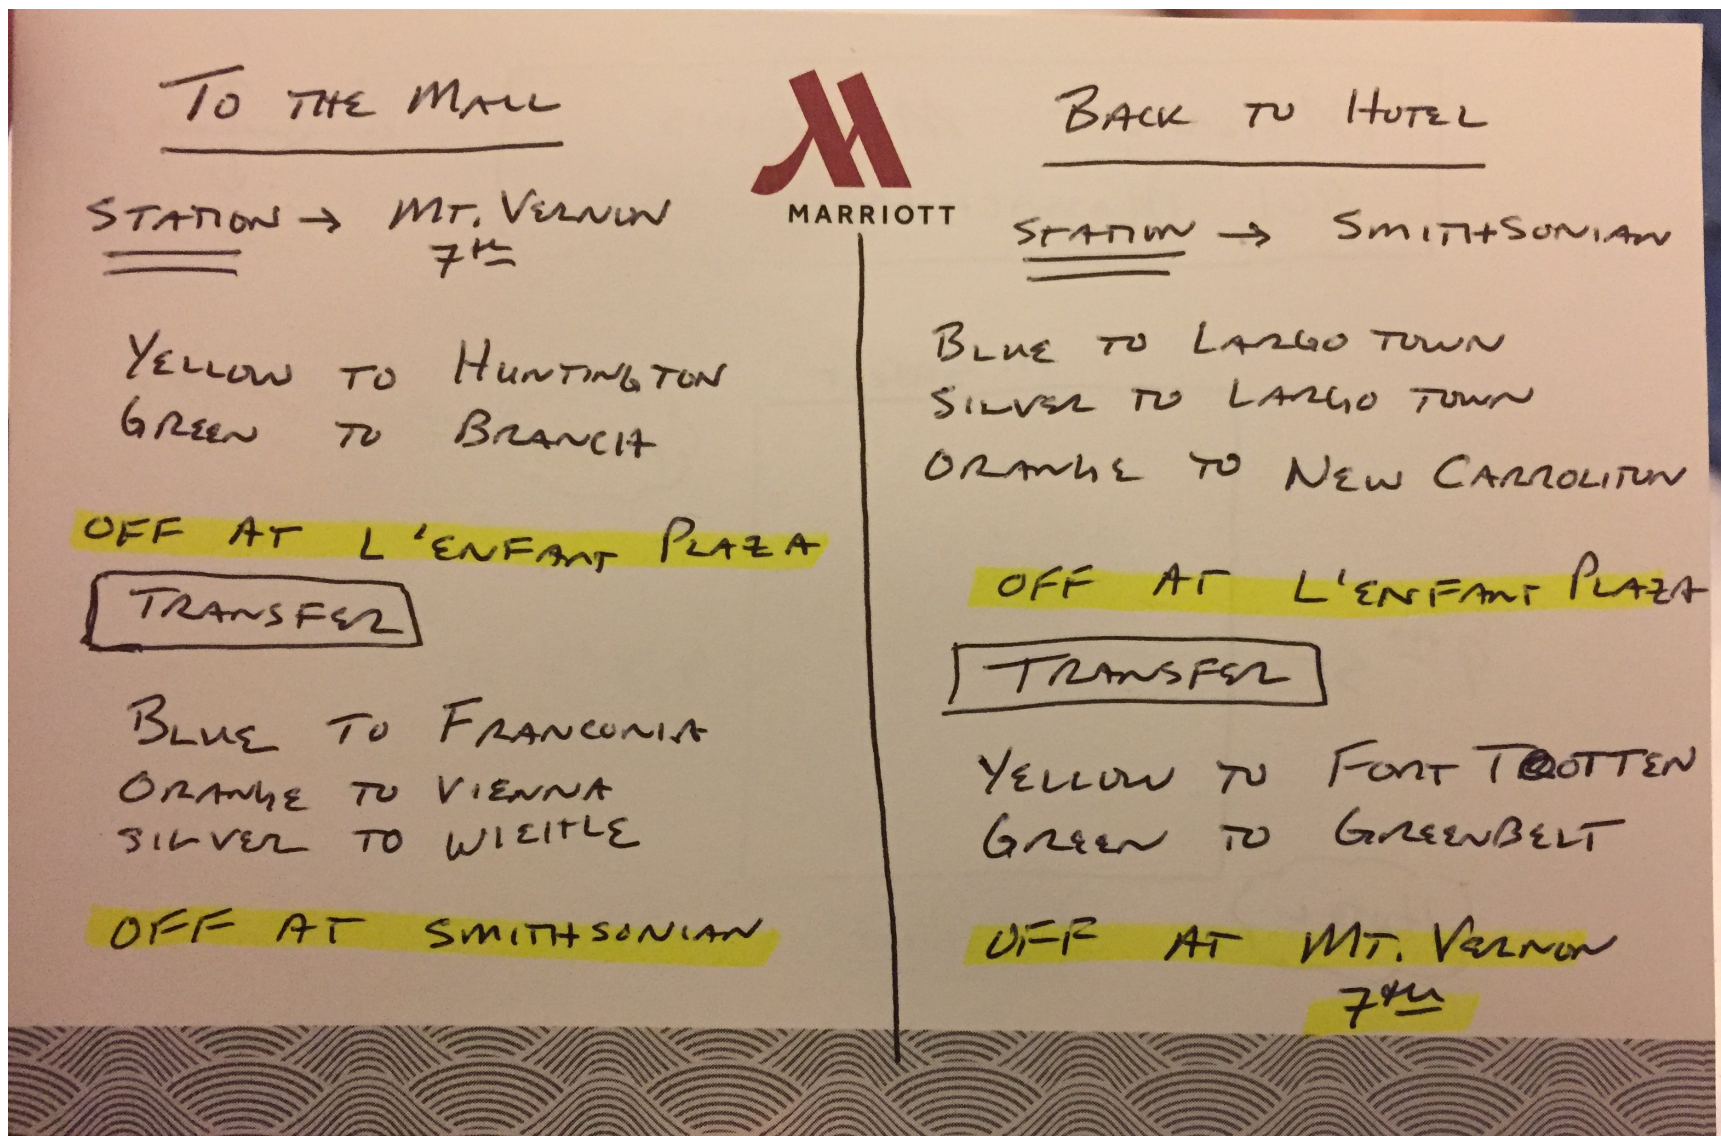 TO THE MALL
STATION → MT. VERNON
7TH
YELLOW TO HUNTINGTON
GREEN TO BRANCH
OFF AT L'ENFANT PLAZA
TRANSFER
BLUE TO FRANCONIA
ORANGE TO VIENNA
SILVER TO WIEHLE
OFF AT SMITHSONIAN
MARRIOTT
BACK TO HOTEL
STATION → SMITHSONIAN
BLUE TO LARGO TOWN
SILVER TO LARGO TOWN
ORANGE TO NEW CARROLITON
OFF AT L'ENFANT PLAZA
TRANSFER
YELLOW TO FORT TOTTEN
GREEN TO GREENBELT
OFF AT MT. VERNON
7TH